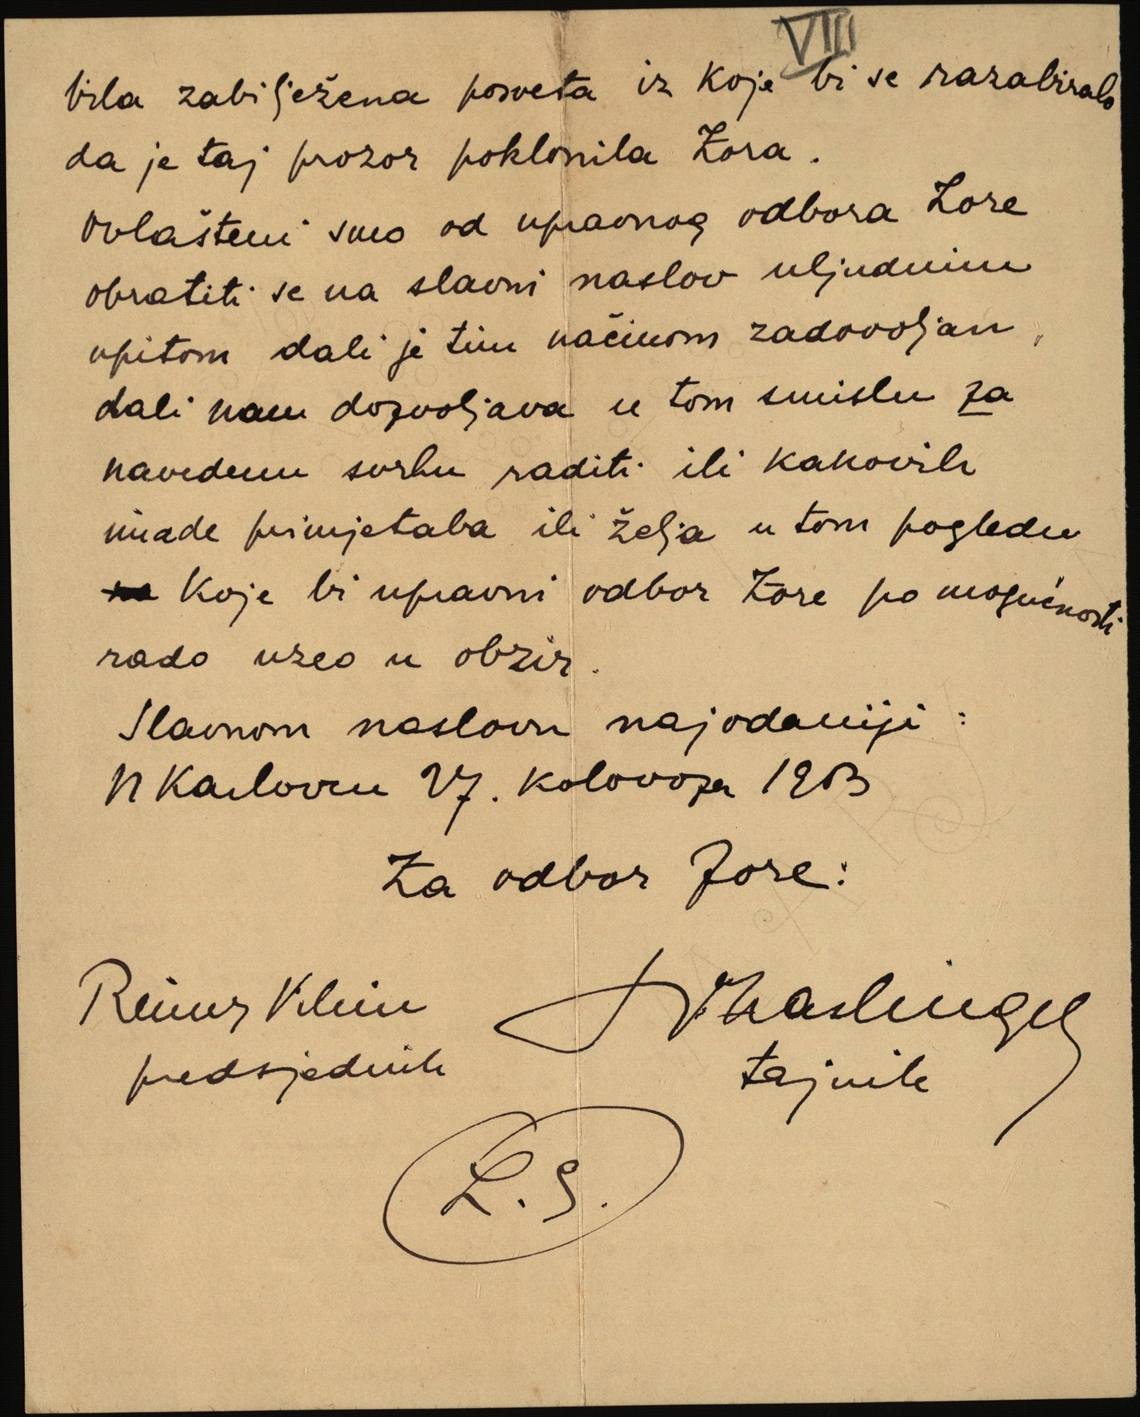 VIII
bila zabilježena posveta iz koje bi se razabiralo
da je taj prozor poklonila Zora.
Ovlašteni smo od upravnog odbora Zore
obratiti se na slavni naslov uljudnim
upitom dali je tim načinom zadovoljan,
dali nam dozvoljava u tom smislu za
navedenu svrhu raditi ili kakovih
imade primjetaba ili želja u tom pogledu
koje bi upravni odbor Zore po mogućnosti
rado uzeo u obzir.
Slavnom naslovu najodaniji:
U Karlovcu 27. kolovoza 1903
Za odbor Zore:
Klein
predsjednik
tajnik
L.S.